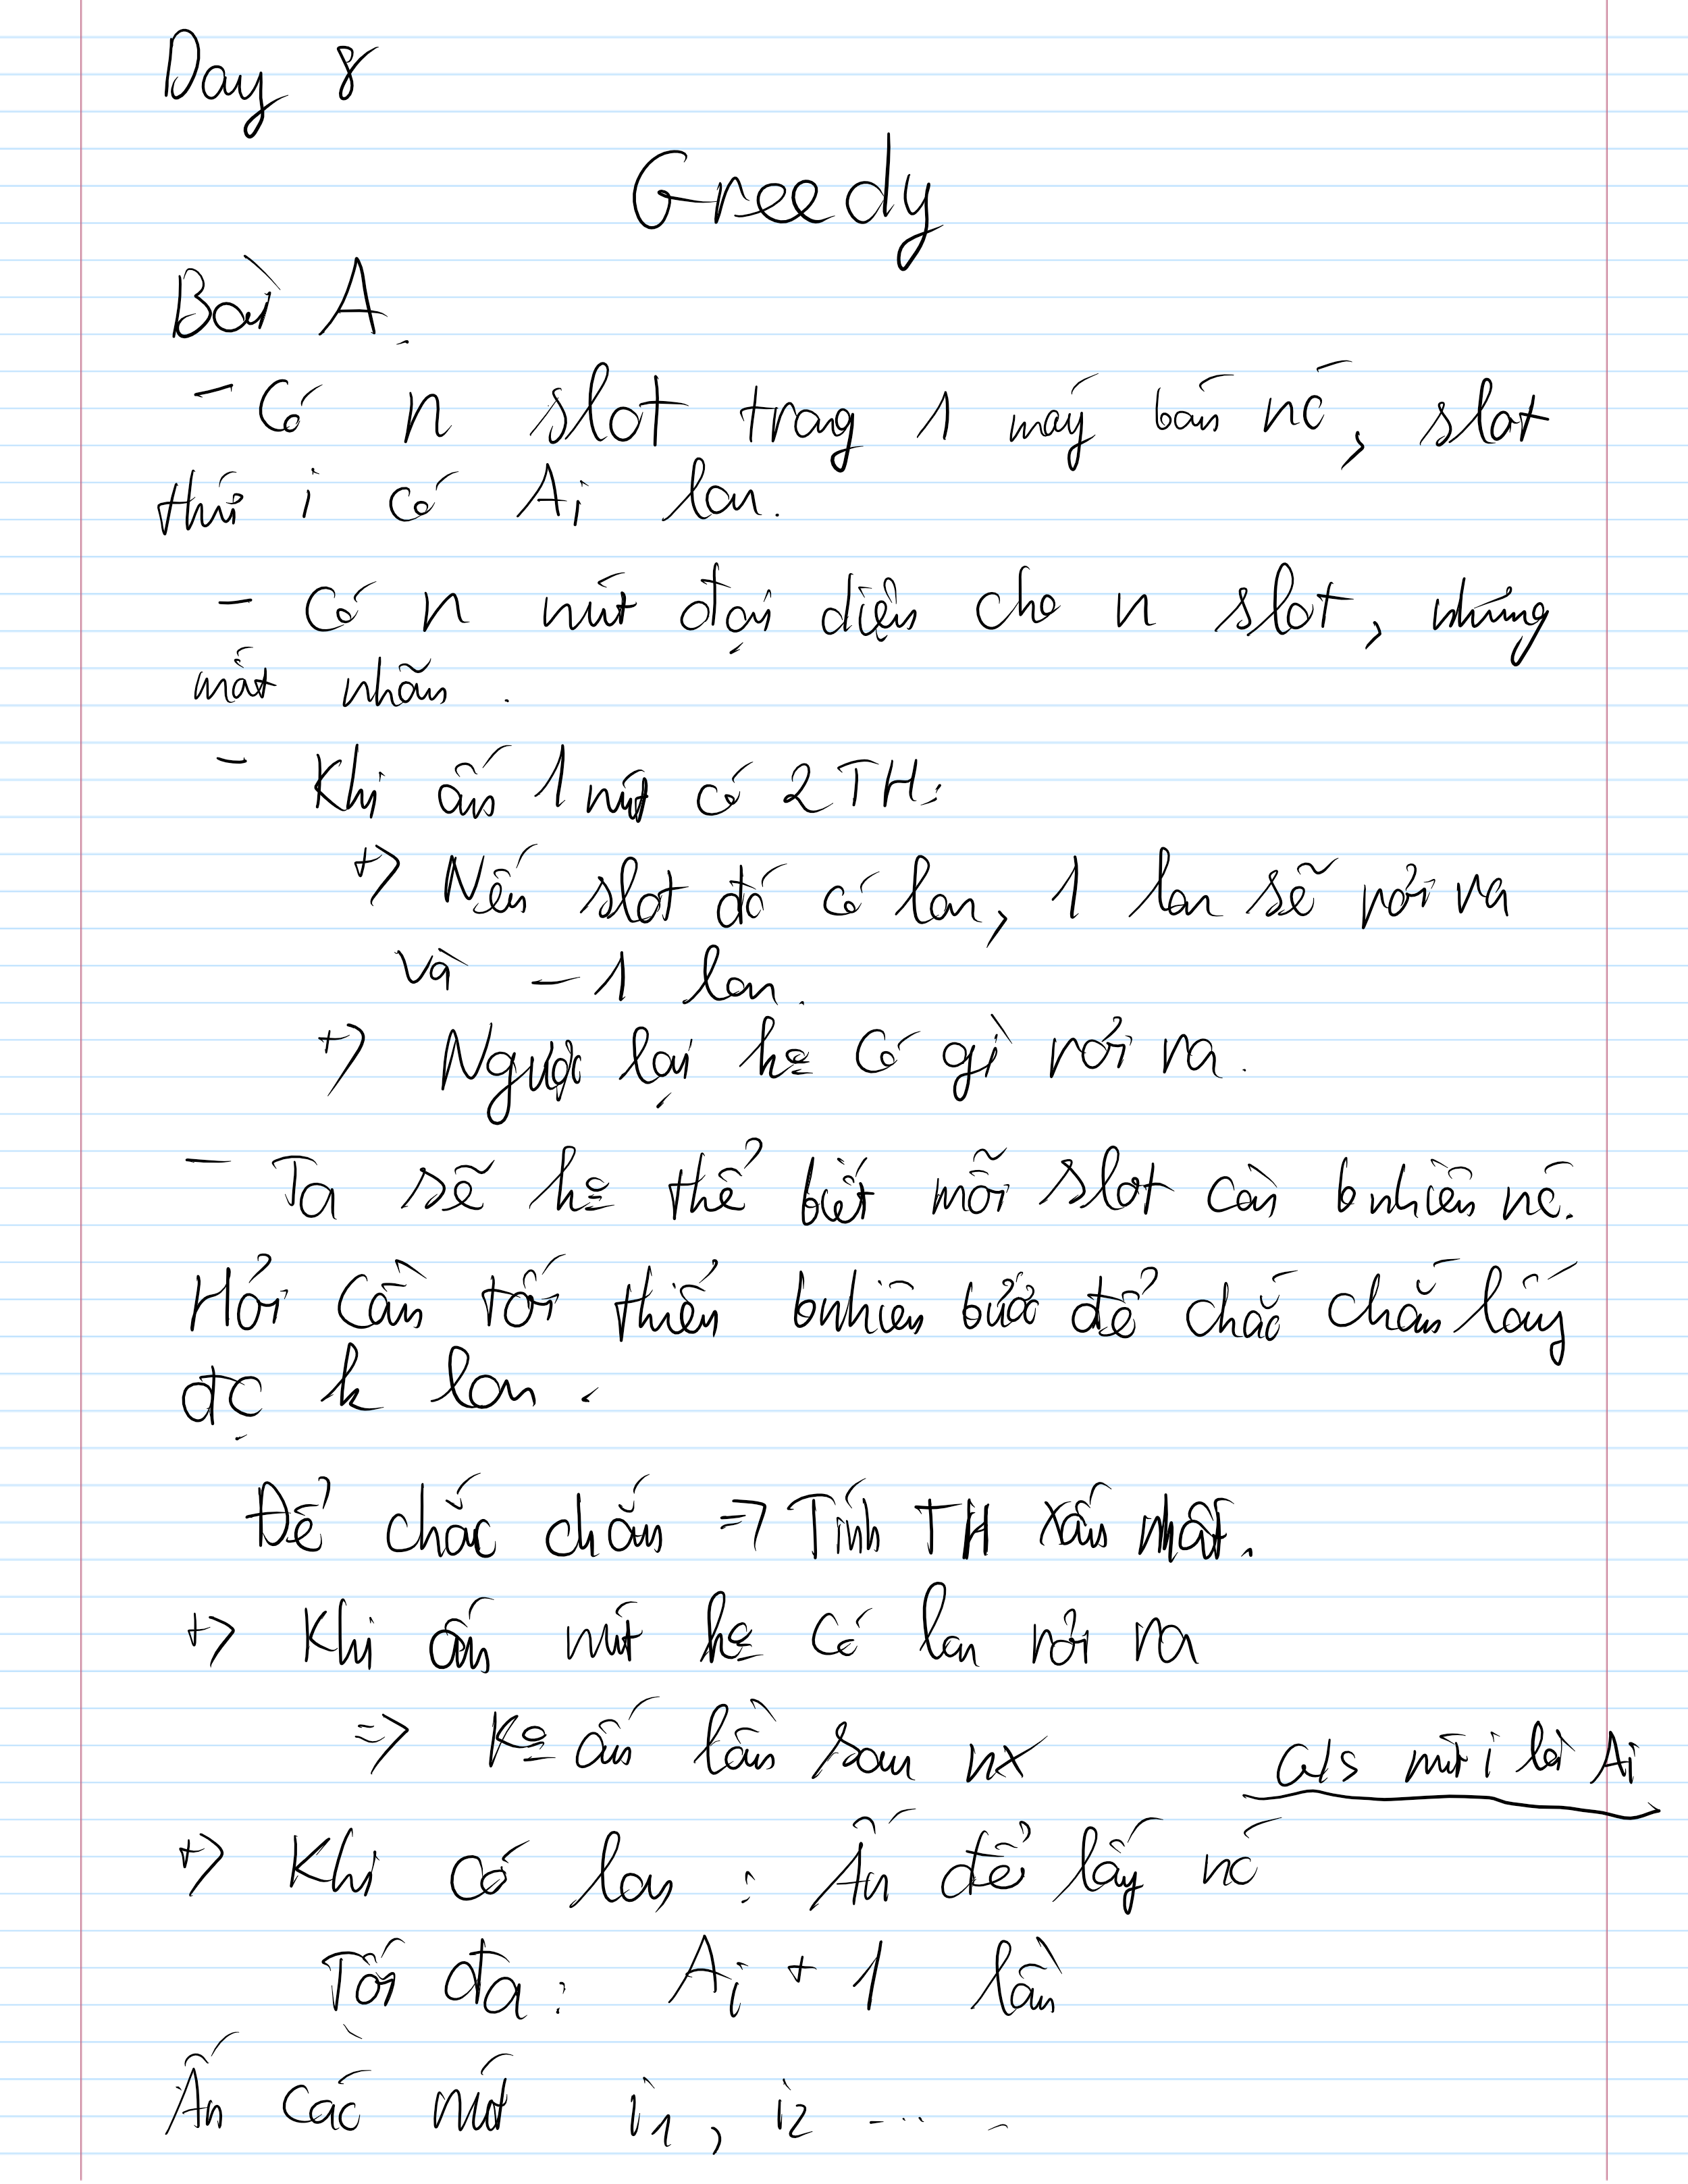 Day 8
Greedy
Bài A.
- Có n slot trong 1 máy bán nc, slot
thứ i có Ai lon.
- Có n nút đại diện cho n slot, nhưng
mất nhãn.
- Khi ấn 1 nút có 2 TH:
+> Nếu slot đó có lon, 1 lon sẽ rơi ra
và -1 lon.
+> Ngược lại ko có gì rơi ra.
- Ta sẽ ko thể biết mỗi slot còn bnhiêu nc.
Hỏi cần tối thiểu bnhiêu bước để chắc chắn lấy
đc k lon.
Để chắc chắn => Tính TH xấu nhất.
+> Khi ấn nút ko có lon rơi ra
=> Ko ấn lần sau nx
G/s nút i là Ai
+> Khi có lon : Ấn để lấy nc
Tối đa: Ai + 1 lần
Ấn các nút i1, i2 ....